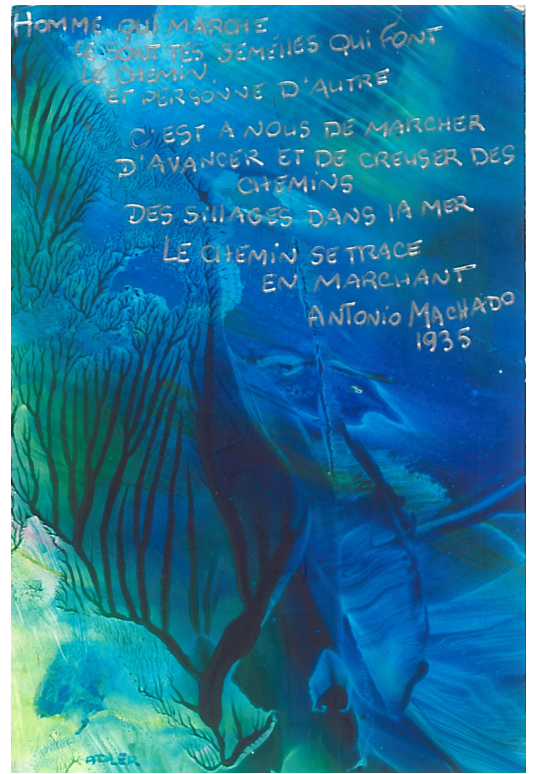 HOMME QUI MARCHE
CE SONT TES SEMELLES QUI FONT
LE CHEMIN,
ET PERSONNE D'AUTRE
C'EST A NOUS DE MARCHER
D'AVANCER ET DE CREUSER DES
CHEMINS
DES SILLAGES DANS LA MER
LE CHEMIN SE TRACE
EN MARCHANT
ANTONIO MACHADO
1935
ADLER